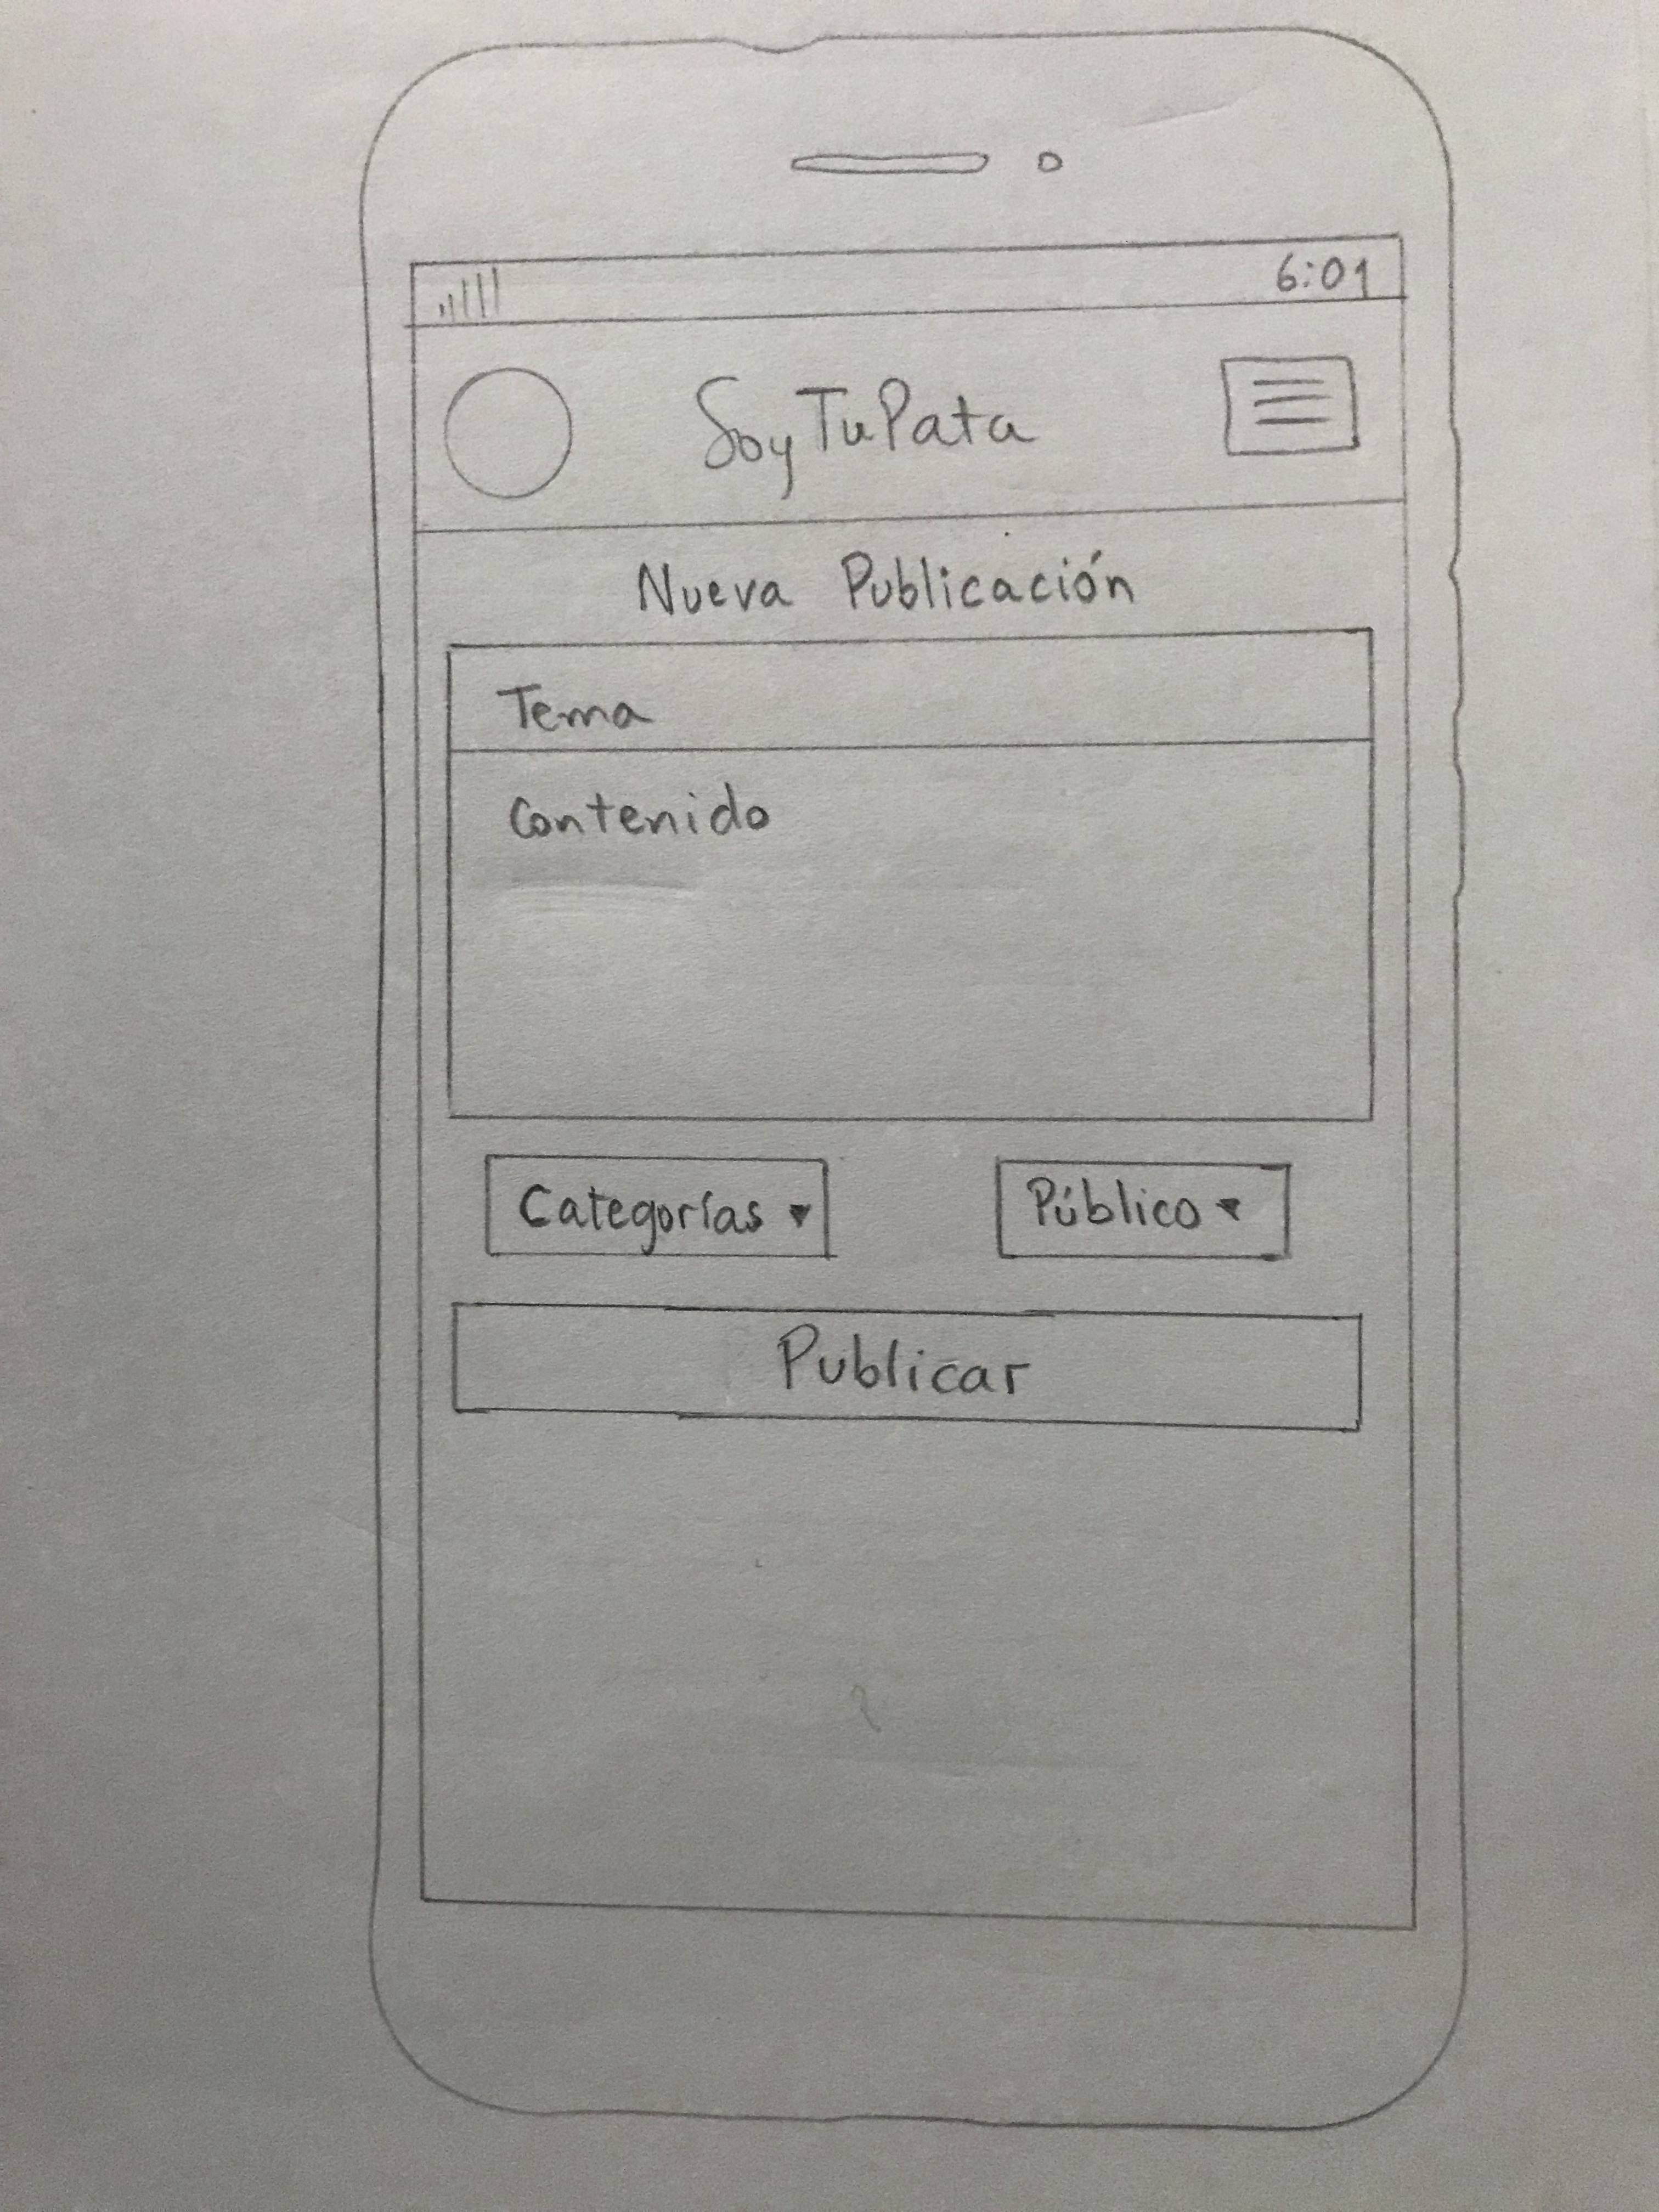 6:01
SoyTuPata
Nueva Publicación
Tema
Contenido
Categorías ▾
Público ▾
Publicar